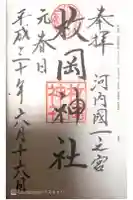 奉拝
河内國一之宮
枚岡神社
元春日
平成三十年六月十六日